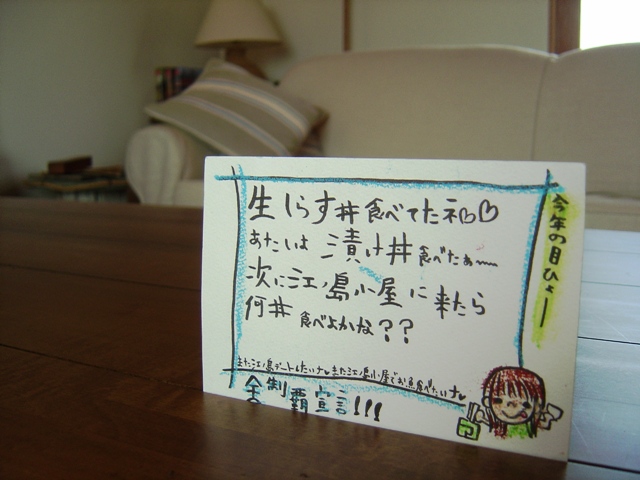 生しらす丼食べてたネ♡♡
あたいは漬け丼食べたぁ〜
次に江ノ島小屋に来たら
何丼食べよかな??
また江ノ島デートしたいナ♪また江ノ島小屋でお魚食べたいナ♪
全制覇宣言!!!
今年の目ひょー